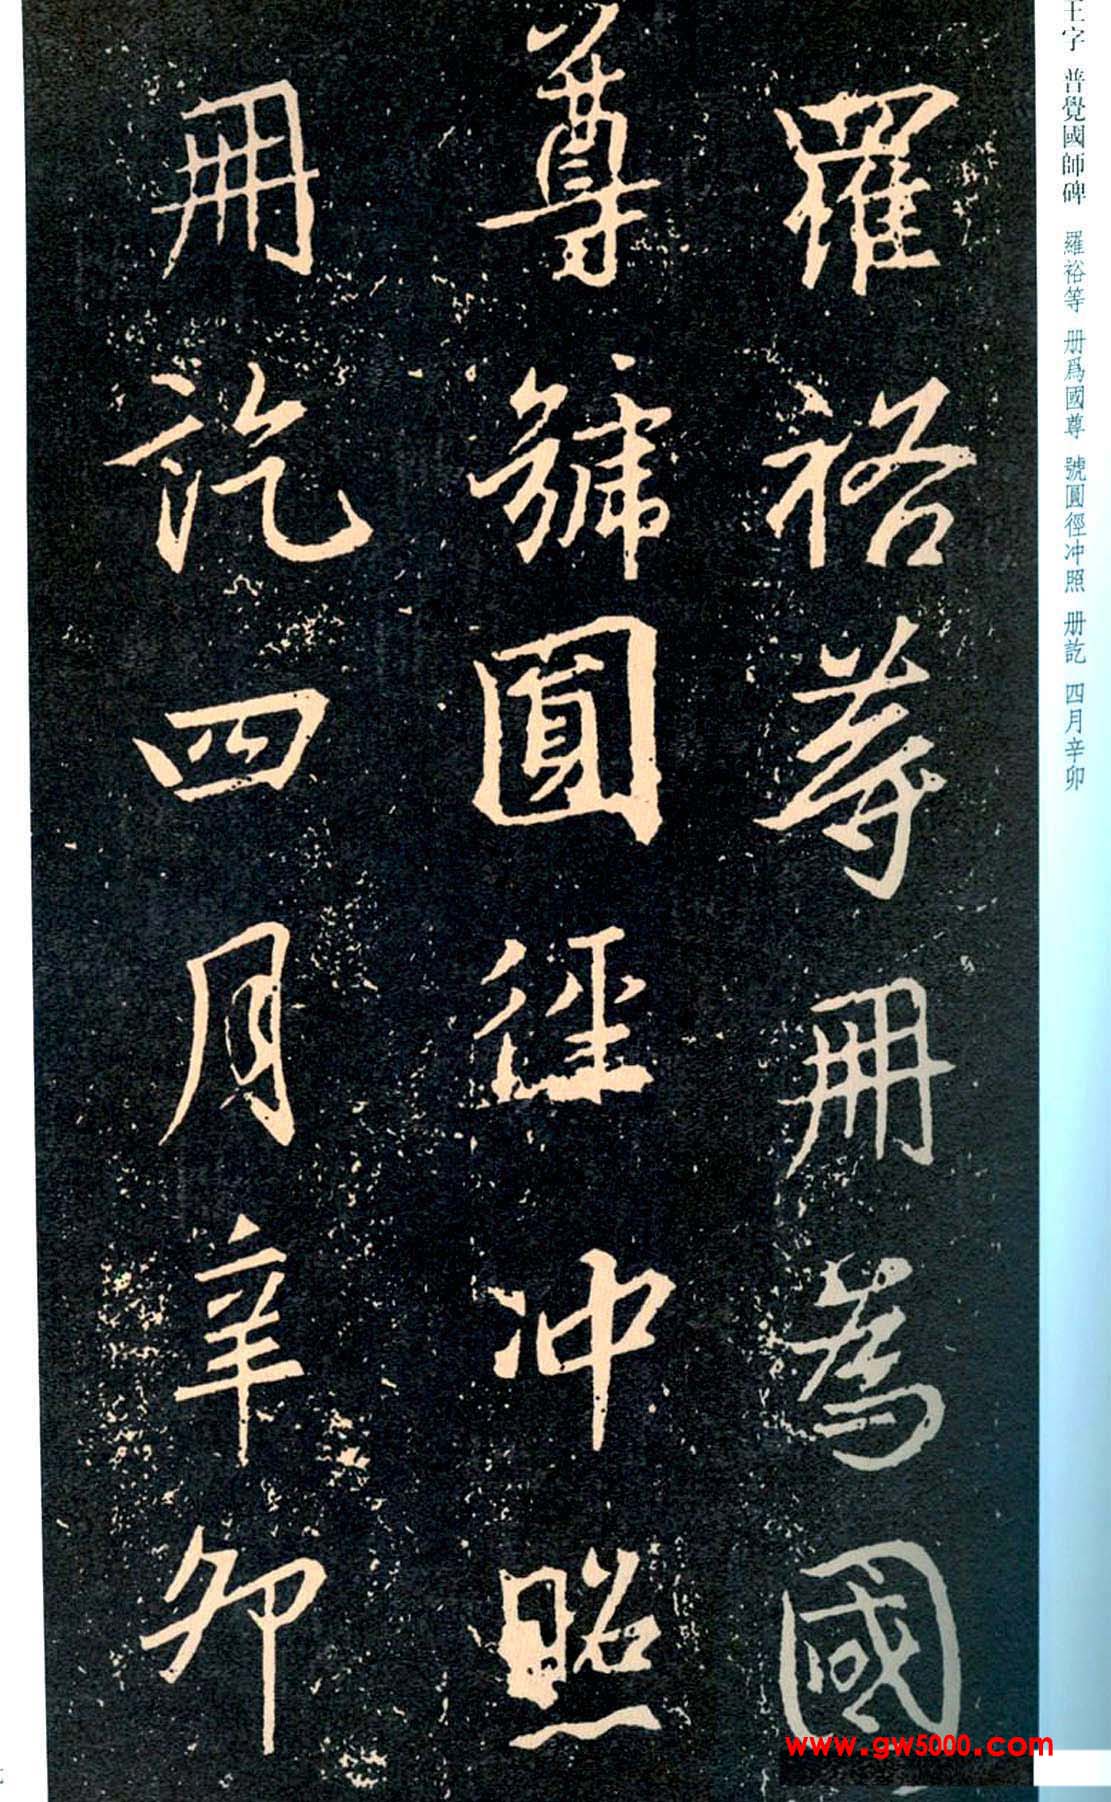 羅裕等冊為國
尊號圓徑冲照
冊訖四月辛卯
王字 普覺國師碑 羅裕等 册爲國尊 號圓徑冲照 册訖 四月辛卯
www.gw5000.com